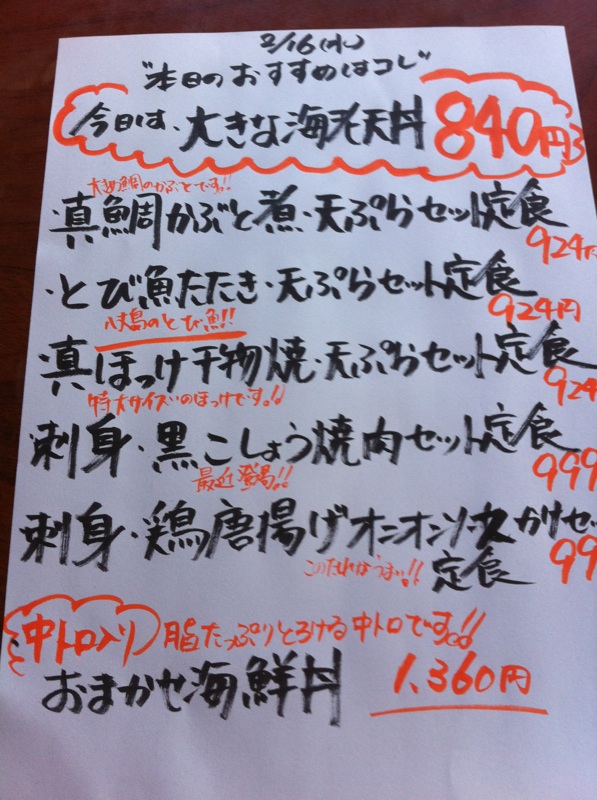 2/16(水)
"本日のおすすめはコレ"
今日は、大きな海老天丼 840円
大き目鯛のかぶとです!!
・真鯛かぶと煮・天ぷらセット定食
924円
・とび魚たたき・天ぷらセット定食
924円
八丈島のとび魚!!
・真ほっけ干物焼・天ぷらセット定食
924
特大サイズのほっけです!!
・刺身・黒こしょう焼肉セット定食
999
最近登場!!
刺身・鶏唐揚げオニオンソースかけセッ
99
このたれがうまい!! 定食
中トロ入り 脂たっぷりとろける中トロです!!
おまかせ海鮮丼 1,360円